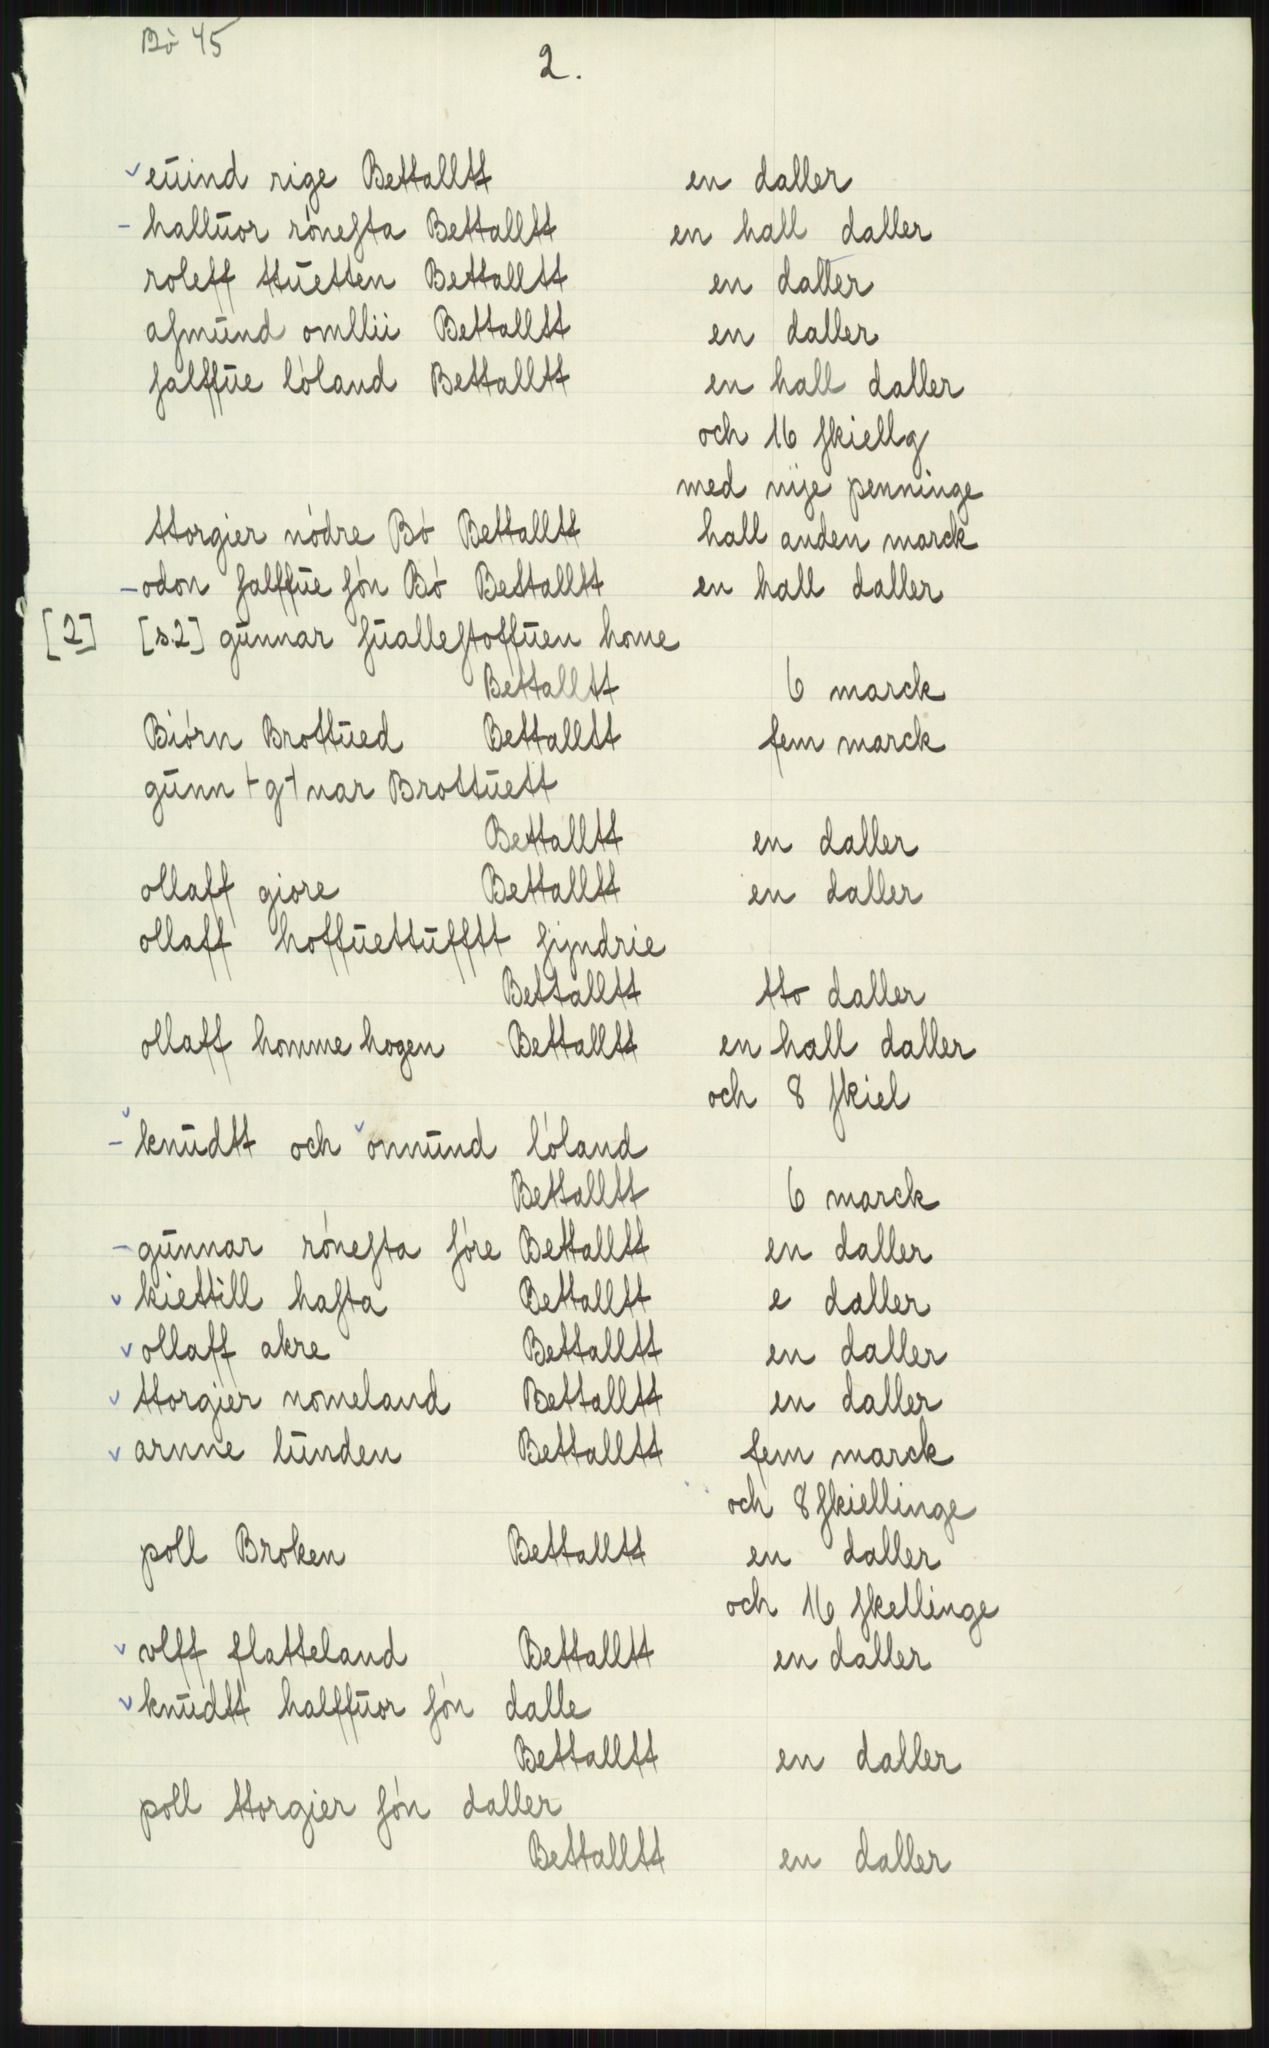 Bö 45
2.
eūind rige Bettalltt en daller
hallūor rónesta Bettalltt en hall daller
roleff ttūetten Bettalltt en daller
asmūnd omllii Bettalltt en daller
salffūe lóland Bettalltt en hall daller
och 16 skiellg
med nije penninge
ttorgier nódre Bó Bettalltt hall anden marck
odon salffūe són Bó Bettalltt en hall daller
[2] [s.2] gūnnar sūallestoffūen home
Bettalltt 6 marck
Biórn Brottūed Bettalltt fem marck
gūnn ⊢g⊣ nar Brottūett
Bettalltt en daller
ollaff giore Bettalltt en daller
ollaff hoffūettūfftt sijndrie
Bettalltt tto daller
ollaff homme hogen Bettalltt en hall daller
och 8 skiel
knūdtt och onnūnd lóland
Bettalltt 6 marck
gūnnar rónesta sóre Bettalltt en daller
kiettill hasta Bettalltt e daller
ollaff akre Bettalltt en daller
ttorgier nomeland Bettalltt en daller
arnne lūnden Bettalltt fem marck
och 8 skiellinge
poll Broken Bettalltt en daller
och 16 skellinge
olff flatteland Bettalltt en daller
knūdtt halffūor són dalle
Bettalltt en daller
poll ttorgier són daller
Bettalltt en daller